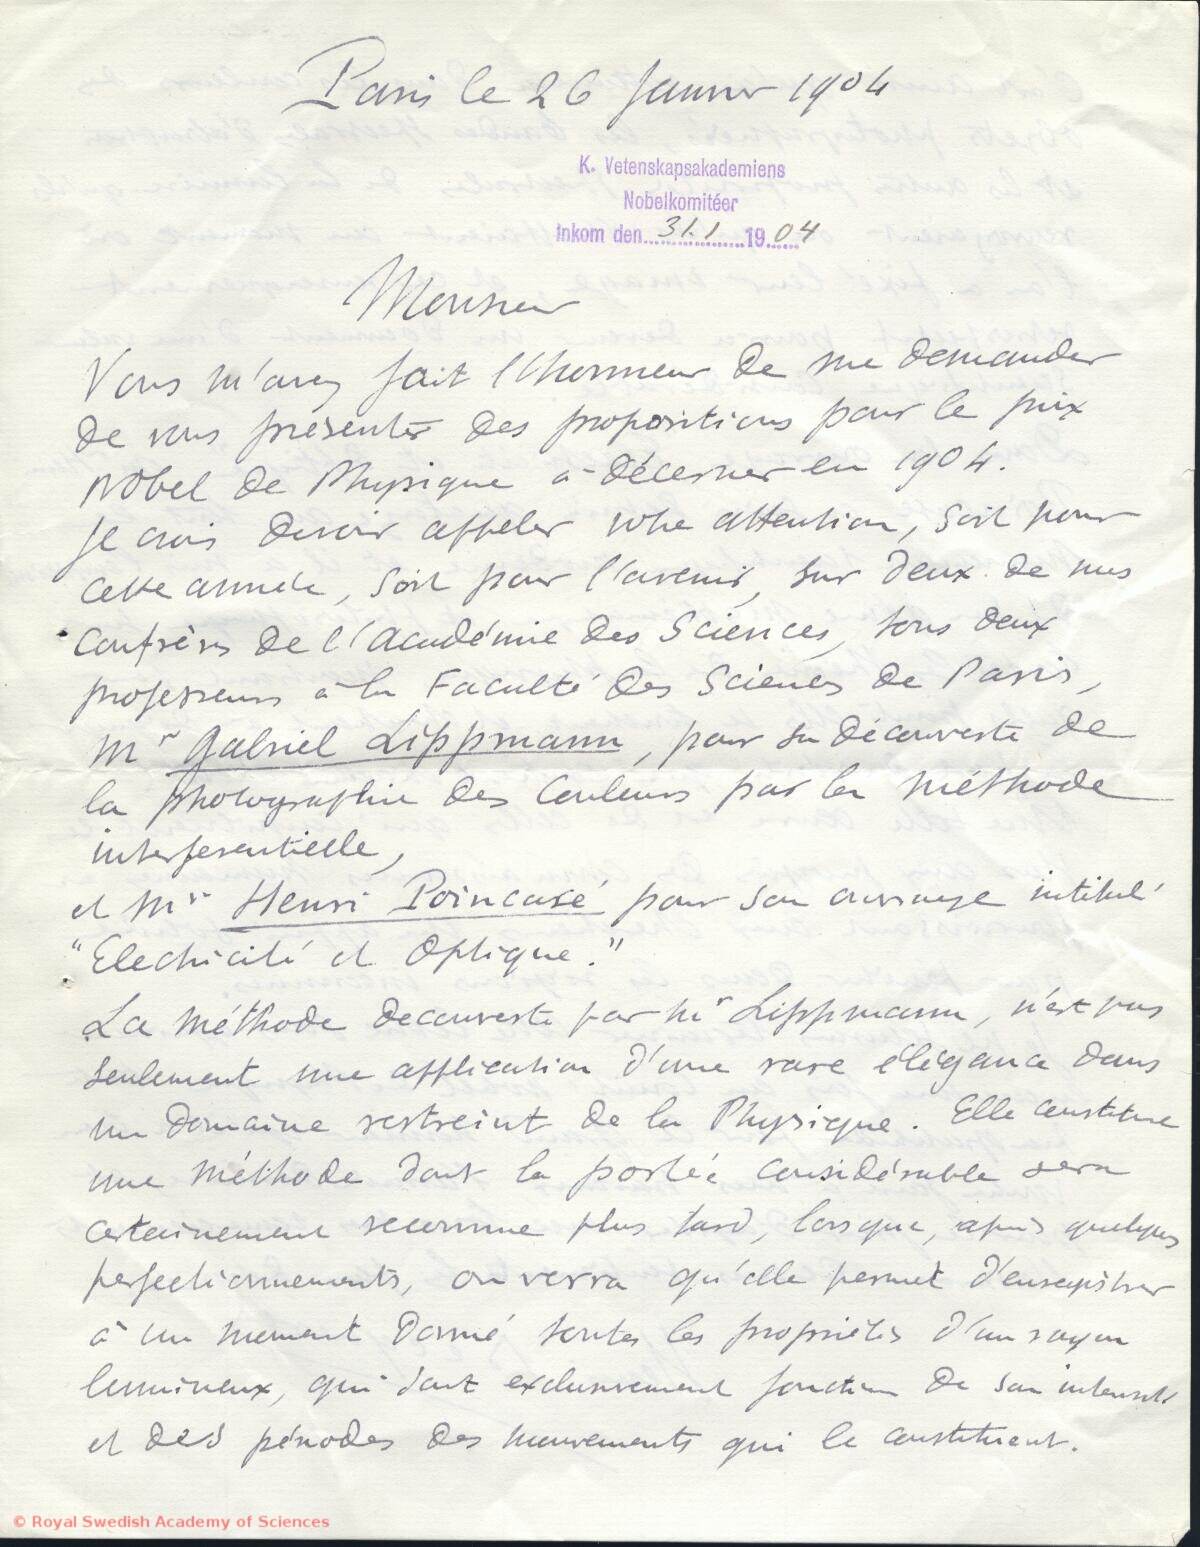 Paris le 26 Janvier 1904
K. Vetenskapsakademiens
Nobelkomitéer
Inkom den 31.1 1904
Monsieur
Vous m'avez fait l'honneur de me demander
de vous présenter des propositions pour le prix
Nobel de Physique à décerner en 1904.
Je crois devoir appeler votre attention, soit pour
cette année, soit pour l'avenir, sur deux de mes
Confrères de l'Académie des Sciences, tous deux
professeurs à la Faculté des Sciences de Paris,
Mr Gabriel Lippmann, pour sa découverte de
la photographie des Couleurs par la méthode
interférentielle,
et Mr Henri Poincaré pour son ouvrage intitulé
"Electricité et Optique."
La méthode decouverte par Mr Lippmann, n'est pas
seulement une application d'une rare élégance dans
un domaine restreint de la Physique. Elle constitue
une méthode dont la portée considérable sera
certainement reconnue plus tard, lorsque, après quelques
perfectionnements, on verra qu'elle permet d'enregistrer
à un moment donné toutes les propriétés d'un rayon
lumineux, qui sont exclusivement fonction de son intensité
et des périodes des mouvements qui le constituent.
© Royal Swedish Academy of Sciences